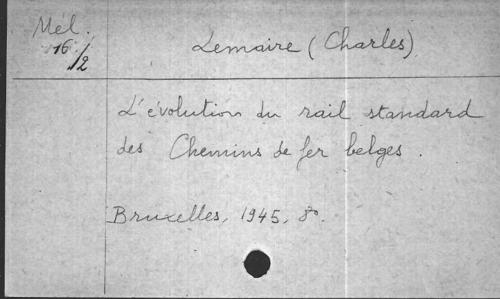 Mél.
16/2
Lemaire (Charles)
L'évolution du rail standard
des Chemins de fer belges.
Bruxelles, 1945, 8º.